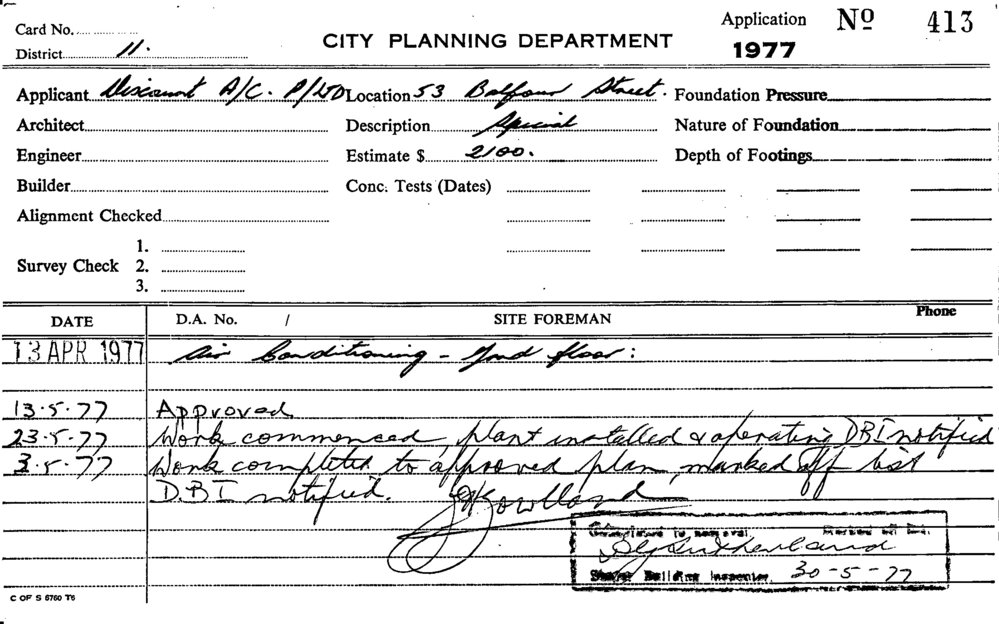 Card No.
District 11.
CITY PLANNING DEPARTMENT
Application Nº 413
1977
Applicant Discount A/C. P/LTD Location 53 Balfour Street. Foundation Pressure
Architect Description Special Nature of Foundation
Engineer Estimate $ 2100. Depth of Footings
Builder Conc. Tests (Dates)
Alignment Checked
1.
Survey Check 2.
3.
DATE D.A. No. / SITE FOREMAN Phone
13 APR 1977 Air Conditioning - Gnd floor:
13.5.77 Approved
23.5.77 Work commenced, plant installed & operating DBI notified
3.5.77 Work completed to approved plan, marked off list
D.B.I notified.
Completed to approval. Marked off list.
Senior Building Inspector. 30-5-77
C OF S 5760 T6